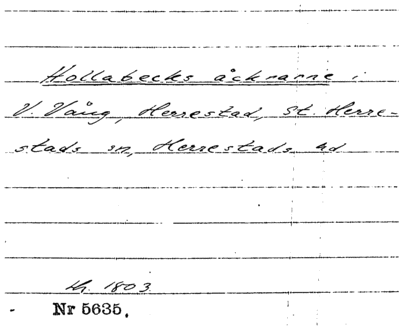 Hollabecks åckrarne i
V. Vång, Herrestad, St. Herre-
stads sn, Herrestads hd
Lh. 1803
- Nr 5635.